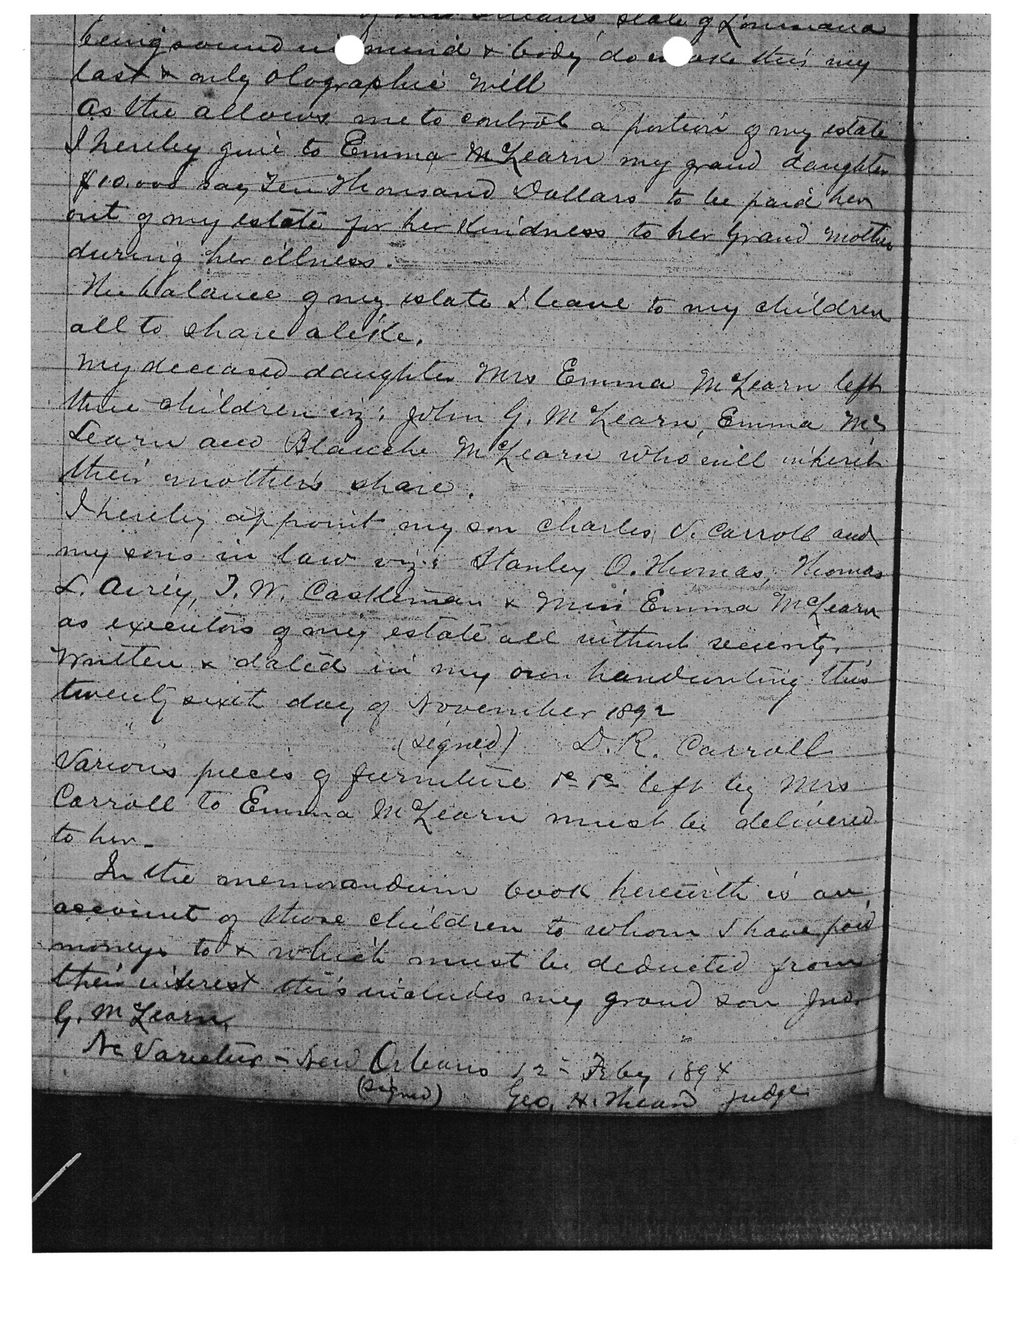 of New Orleans State of Louisiana
being sound in mind & body do make this my
last & only olographic Will
As the allows me to control a portion of my estate
I hereby give to Emma McLearn my grand daughter
$10.000 say Ten Thousand Dollars to be paid her
out of my estate for her kindness to her grand mother
during her illness.
The balance of my estate I leave to my children
all to share alike.
My deceased daughter Mrs Emma McLearn left
three children viz: John G. McLearn, Emma Mc
Learn and Blanche McLearn who will inherit
their mother's share.
I hereby appoint my son Charles V. Carroll and
my sons in law viz: Stanley O. Thomas, Thomas
L. Airey, T. W. Castleman & Miss Emma McLearn
as executors of my estate all without security.
Written & dated in my own handwriting this
twenty sixth day of November 1892
(signed) D. R. Carroll
Various pieces of furniture &c &c left by Mrs
Carroll to Emma McLearn must be delivered
to her.
In the memorandum book herewith is an
account of those children to whom I have paid
moneys to & which must be deducted from
their interest this includes my grand son Jno.
G. McLearn.
Ne Varietur - New Orleans 12 - Feby 1894
(signed) Geo. H. Theard Judge